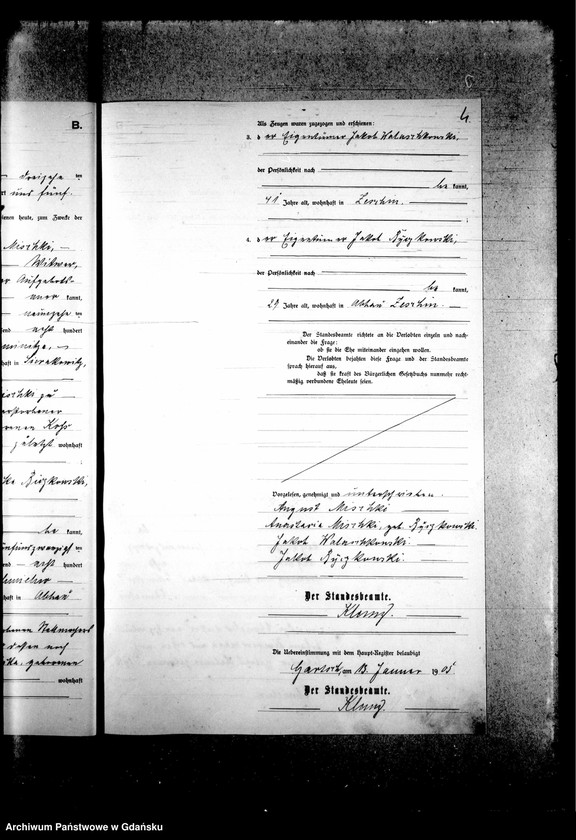 B.
4.
dreizehn ten
und fünf
ionen heute, zum Zwecke der
Mischki, —
Witwer,
Aufgebots-
kannt,
neunzehn ten
end — acht hundert
haft in Sierakowitz,
Mischki zu
verstorbener
Koss
zuletzt wohnhaft
Byczkowski,
be kannt,
fünfundzwanzigsten
end — acht hundert
haft in Abbau
geborenen
wohnhaft
Als Zeugen waren zugezogen und erschienen:
3. der Eigentümer Jakob Walaschkowski,
der Persönlichkeit nach
be kannt,
41 Jahre alt, wohnhaft in Zeschin.
4. der Eigentümer Jakob Byczkowski,
der Persönlichkeit nach
be kannt,
29 Jahre alt, wohnhaft in Abbau Zeschin.
Der Standesbeamte richtete an die Verlobten einzeln und nach-
einander die Frage:
ob sie die Ehe miteinander eingehen wollen.
Die Verlobten bejahten diese Frage und der Standesbeamte
sprach hierauf aus,
daß sie kraft des Bürgerlichen Gesetzbuchs nunmehr recht-
mäßig verbundene Eheleute seien.
Vorgelesen, genehmigt und unterschrieben.
August Mischki
Anastasia Mischki, geb. Byczkowski
Jakob Walaschkowski.
Jakob Byczkowski.
Der Standesbeamte.
Die Uebereinstimmung mit dem Haupt-Register beglaubigt
am 13. Januar 1905
Der Standesbeamte.
Archiwum Państwowe w Gdańsku